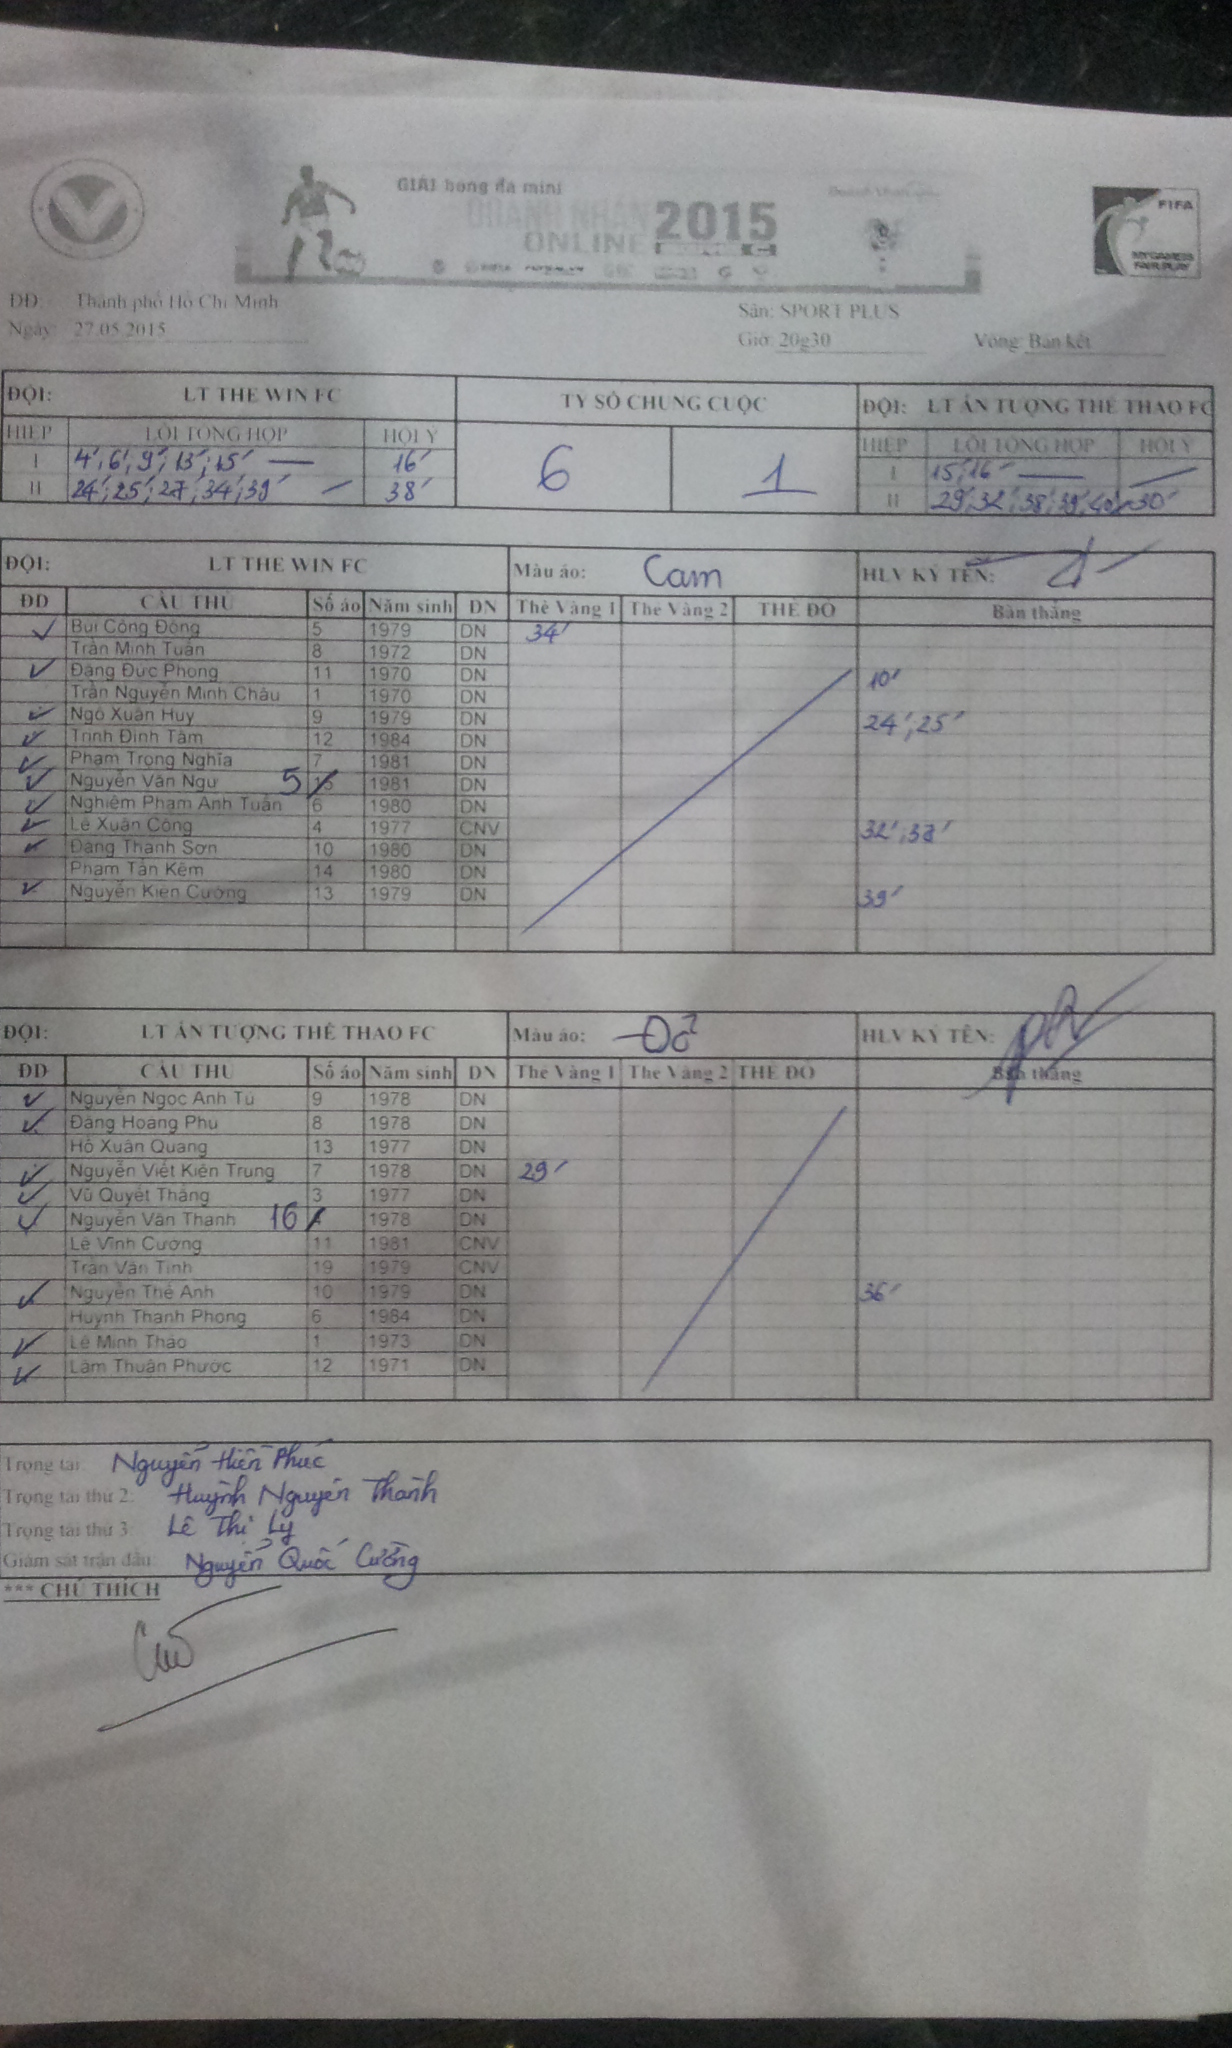 GIẢI bóng đá mini
DOANH NHÂN 2015
ONLINE
FIFA
MY GAME IS
FAIR PLAY
ĐĐ: Thành phố Hồ Chí Minh
Sân: SPORT PLUS
Ngày: 27.05.2015
Giờ: 20g30 Vòng: Bán kết
ĐỘI: LT THE WIN FC TỶ SỐ CHUNG CUỘC ĐỘI: LT ẤN TƯỢNG THỂ THAO FC
HIỆP LỖI TỔNG HỢP HỘI Ý 6 1 HIỆP LỖI TỔNG HỢP HỘI Ý
I 4', 6', 9', 13', 15' — 16' I 15', 16' — —
II 24', 25', 27', 34', 39' — 38' II 29', 32', 38', 39', 40' 30'
ĐỘI: LT THE WIN FC Màu áo: Cam HLV KÝ TÊN:
ĐD CẦU THỦ Số áo Năm sinh DN Thẻ Vàng 1 Thẻ Vàng 2 THẺ ĐỎ Bàn thắng
✓ Bùi Công Đông 5 1979 DN 34'
Trần Minh Tuấn 8 1972 DN
✓ Đặng Đức Phong 11 1970 DN 10'
Trần Nguyễn Minh Châu 1 1970 DN
✓ Ngô Xuân Huy 9 1979 DN 24', 25'
✓ Trịnh Đình Tâm 12 1984 DN
✓ Phạm Trọng Nghĩa 7 1981 DN
✓ Nguyễn Văn Ngư 5 15 1981 DN
✓ Nghiêm Phạm Anh Tuấn 6 1980 DN
✓ Lê Xuân Công 4 1977 CNV 32', 38'
✓ Đặng Thanh Sơn 10 1980 DN
Phạm Tấn Kêm 14 1980 DN
✓ Nguyễn Kiên Cường 13 1979 DN 39'
ĐỘI: LT ẤN TƯỢNG THỂ THAO FC Màu áo: Đỏ HLV KÝ TÊN:
ĐD CẦU THỦ Số áo Năm sinh DN Thẻ Vàng 1 Thẻ Vàng 2 THẺ ĐỎ Bàn thắng
✓ Nguyễn Ngọc Anh Tú 9 1978 DN
✓ Đặng Hoàng Phú 8 1978 DN
Hồ Xuân Quang 13 1977 DN
✓ Nguyễn Viết Kiên Trung 7 1978 DN 29'
✓ Vũ Quyết Thắng 3 1977 DN
✓ Nguyễn Văn Thanh 16 1978 DN
Lê Vĩnh Cường 11 1981 CNV
Trần Văn Tính 19 1979 CNV
✓ Nguyễn Thế Anh 10 1979 DN 36'
Huỳnh Thanh Phong 6 1984 DN
✓ Lê Minh Thảo 1 1973 DN
✓ Lâm Thuận Phước 12 1971 DN
Trọng tài: Nguyễn Hiền Phúc
Trọng tài thứ 2: Huỳnh Nguyên Thành
Trọng tài thứ 3: Lê Thị Ly
Giám sát trận đấu: Nguyễn Quốc Cường
*** CHÚ THÍCH